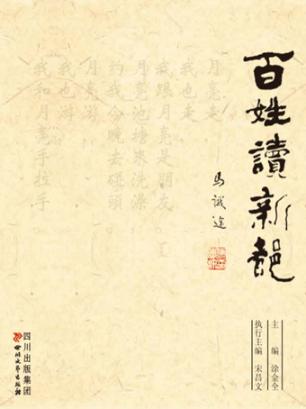 百姓讀新
馬識途
月亮走
我也走
我跟月亮是朋友。
月亮池塘裏洗澡
約我今晚去碰頭
月亮游
我也游
我和月亮手拉手
主 编 涂金全
执行主编 宋昌文
四川出版集团
四川文艺出版社